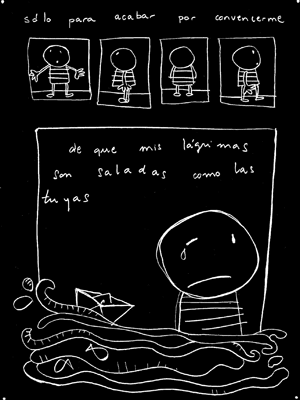 sólo para acabar por convencerme
de que mis lágrimas
son saladas como las
tuyas